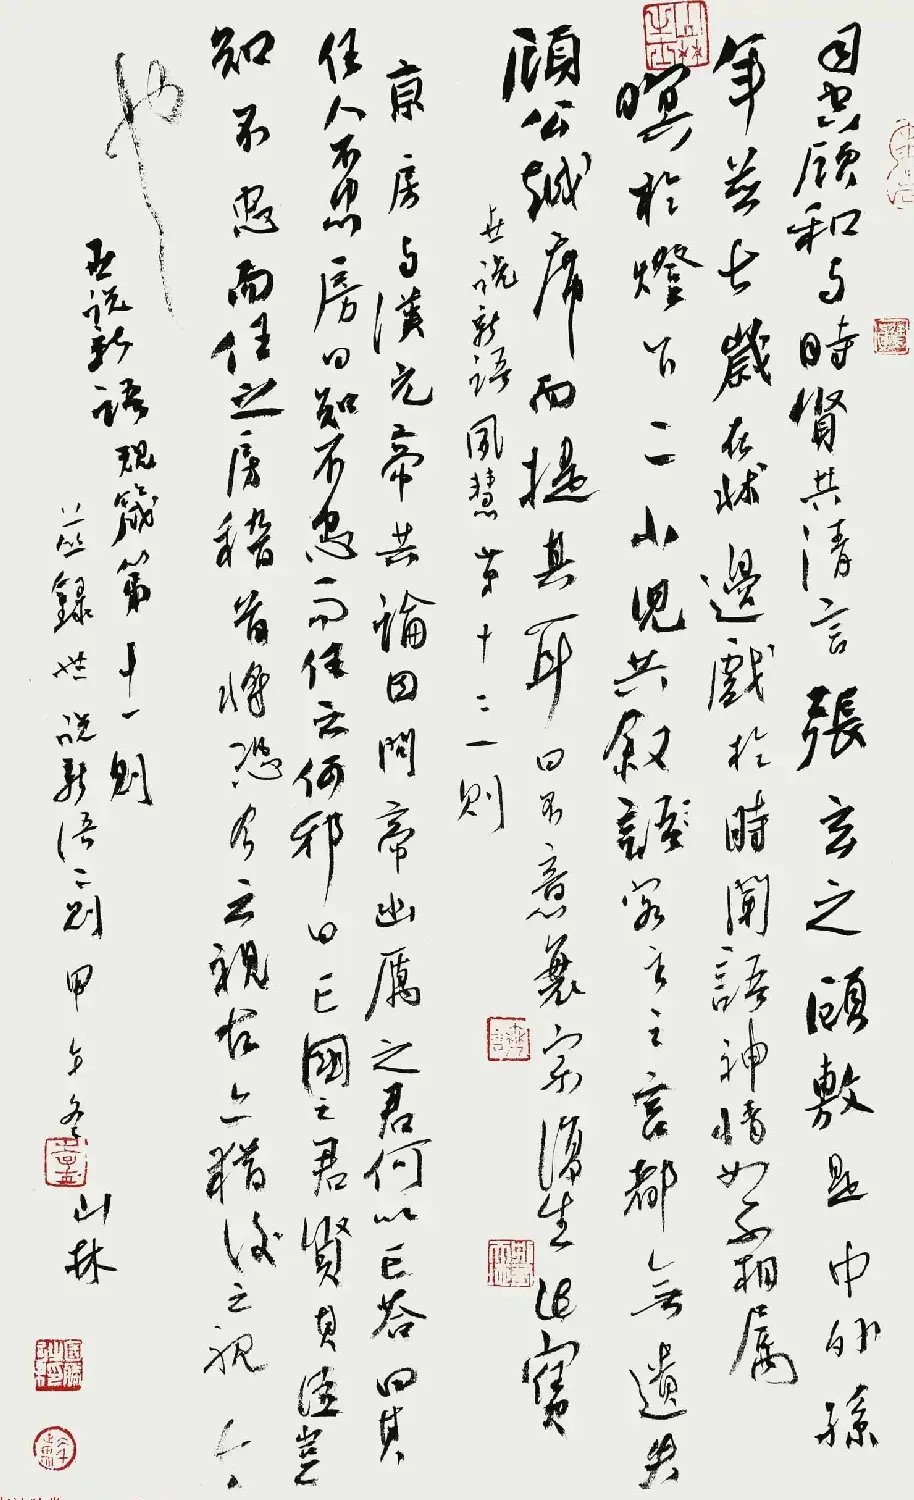 司空顧和與時賢共清言張玄之顧敷是中外孫
年並七歲在牀邊戲於時聞語神情如不相屬
暝於燈下二小兒共敘客主之言都無遺失
顧公越席而提其耳曰不意衰宗復生此寶
世说新语夙慧第十二一則
京房与漢元帝共論因問帝幽厲之君何以亡答曰其
任人不忠房曰知不忠而任之何邪曰亡國之君賢其臣豈
知不忠而任之房稽首將恐今之視古亦猶後之視今
也
世说新语規箴第十一則
茲錄世说新语二則甲午冬
山林